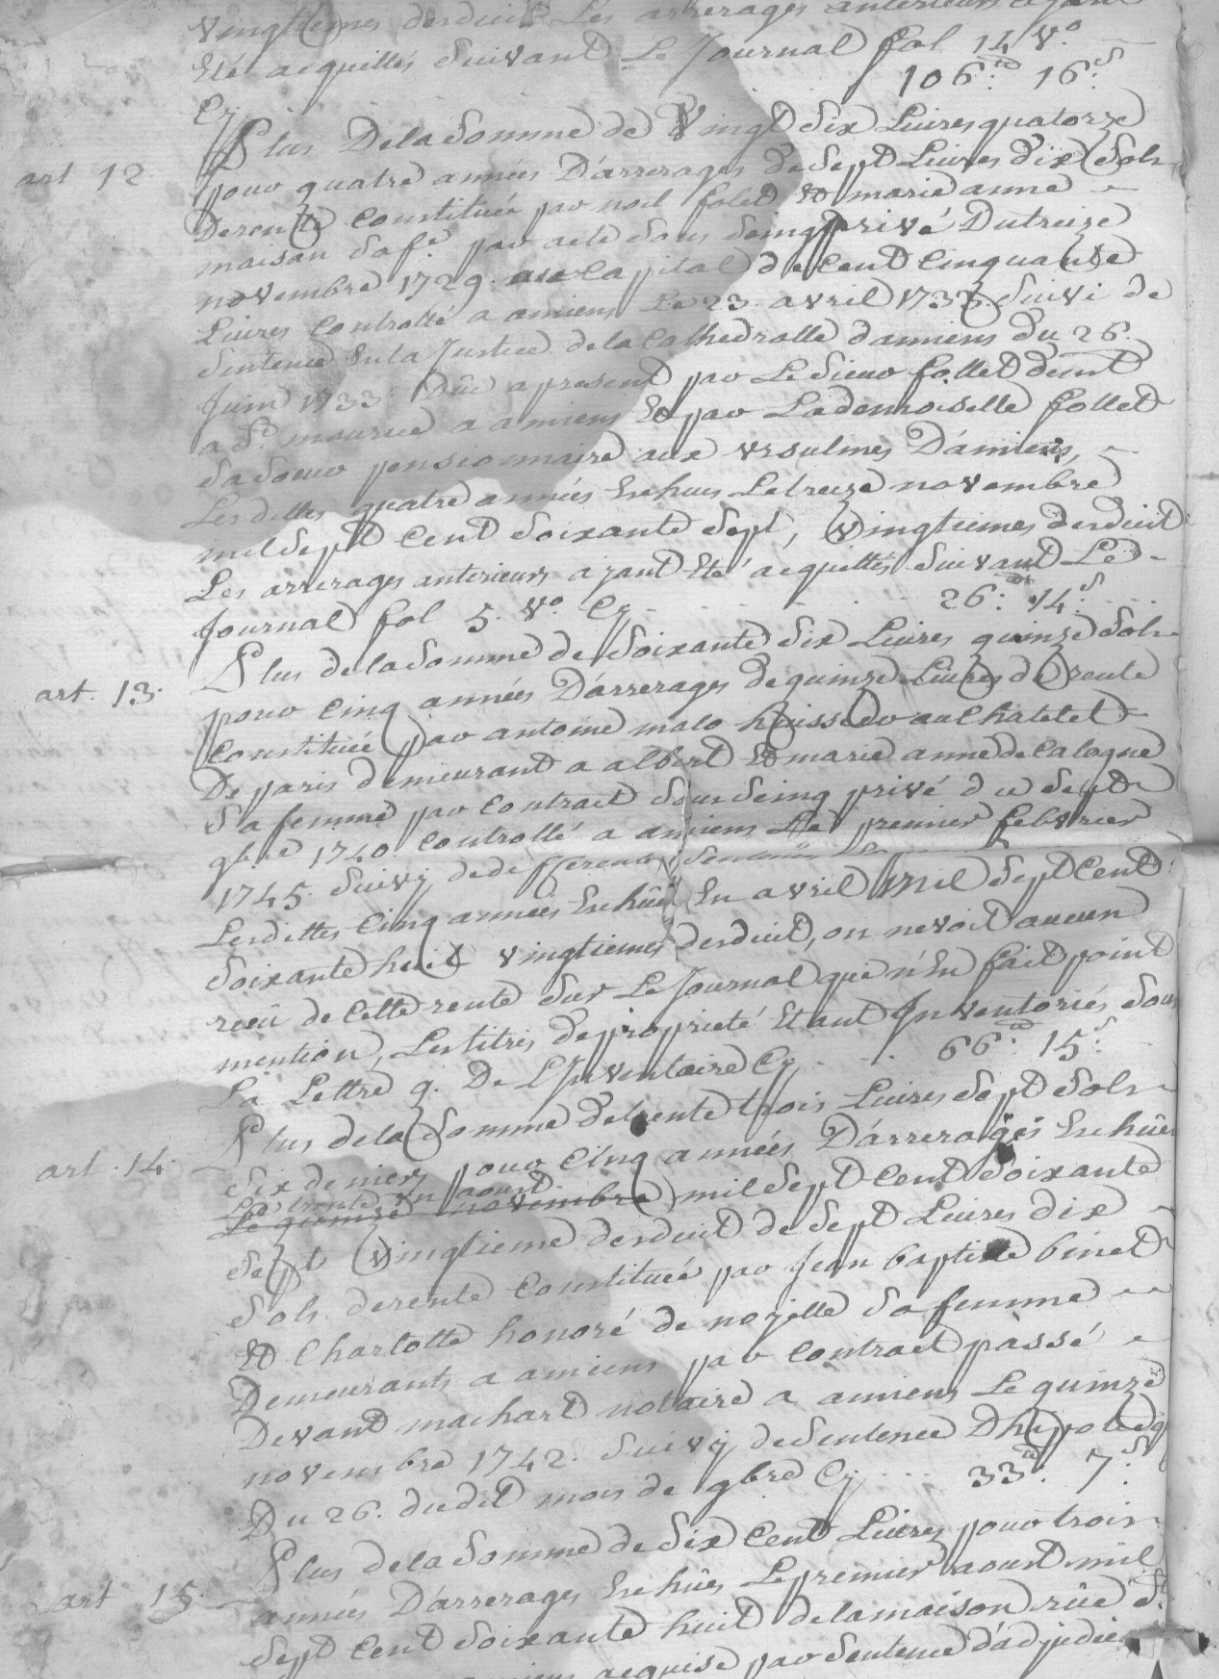 vingtiemes desduits Les arrerages anterieurs ayant
Eté acquittés Suivant Le Journal fol 14 v.º
Cy 106.tt 16.s
art 12 Plus De la Somme de Vingt Six Livres quatorze
pour quatre années D'arrerages de Sept Livres dix Sols
De rente Constituée par noel folet Et marie anne
maison Sa fe. par acte Sous Seing privé Du treize
novembre 1729. au Capital de Cent Cinquante
Livres Controllé a amiens Le 23 avril 1733. Suivi de
Sentence en la Justice de la Cathedralle d'amiens du 26.
Juin 1733 Düe a present par Le Sieur follet demt
a St maurice a amiens Et par La demoiselle follet
Sa Soeur pensionnaire aux Vrsulines D'amiens,
Les dittes quatre années Echues Le treize novembre
mil Sept Cent Soixante Sept, Vingtiemes desduit
Les arrerages anterieurs ayant Eté acquittés Suivant Le
Journal fol 5. V.º Cy 26.tt 14.s
art. 13. Plus de la Somme de Soixante Six Livres quinze Sols
pour Cinq années D'arrerages de quinze Livres de rente
Constituée par antoine malo huissier au Chatelet
De paris demeurant a albert Et marie anne de Calogne
Sa femme par Contract Sous Seing privé du Sept
9bre 1740 Controllé a amiens Le premier febvrier
1745. Suivy de differentes Sentences
Les dittes Cinq années Echües En avril Mil Sept Cent
Soixante huit vingtiemes desduit, on ne voit aucun
recü de Cette rente Sur Le Journal que n'En fait point
mention, Les titres de proprieté Etant Inventoriés Sous
La Lettre q. De L'Inventaire Cy 66.tt 15.s
art. 14. Plus de la Somme de trente trois Livres Sept Sols
Six deniers pour Cinq années D'arrerages Echües
Le trente un aoust
Le quinze novembre mil Sept Cent Soixante
Sept Vingtieme desduit de Sept Livres dix
Sols de rente Constituée par Jean baptiste binet
Et Charlotte honoré de noyelle Sa femme
Demeurants a amiens par Contract passé
Devant machart notaire a amiens Le quinze
novembre 1742. Suivÿ de Sentence D'hÿpoteq
Du 26. dudit mois de 9bre Cy 33.tt 7.s
art 15. Plus de la Somme de Six Cent Livres pour trois
années D'arrerages Echües Le premier aoust mil
Sept Cent Soixante huit de la maison rüe St.
acquise par Sentence d'adjudica